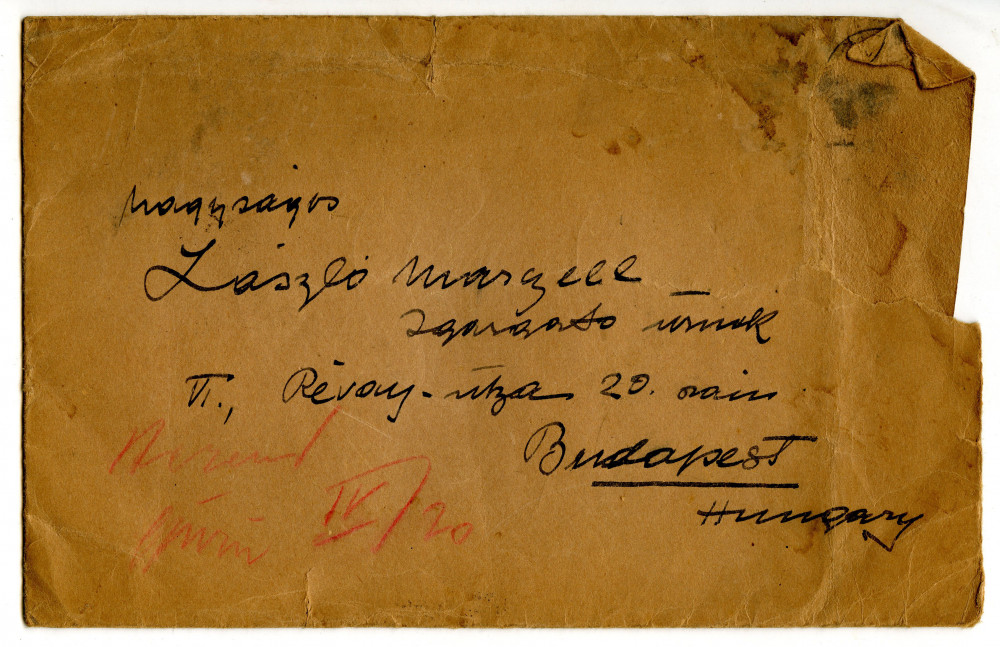 Nagyságos
László Marczell
igazgató úrnak
VI., Révay-utca 20. szám
Budapest
Hungary
IV/20